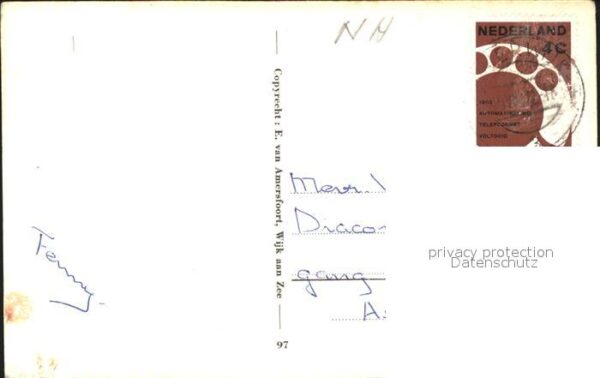 NH
NEDERLAND
4C
1962
AUTOMATISERING
TELEFOONNET
VOLTOOID
Copyrecht : E. van Amersfoort, Wijk aan Zee
97
Fenny
Mevr. V
Diaco
gang
A
privacy protection
Datenschutz